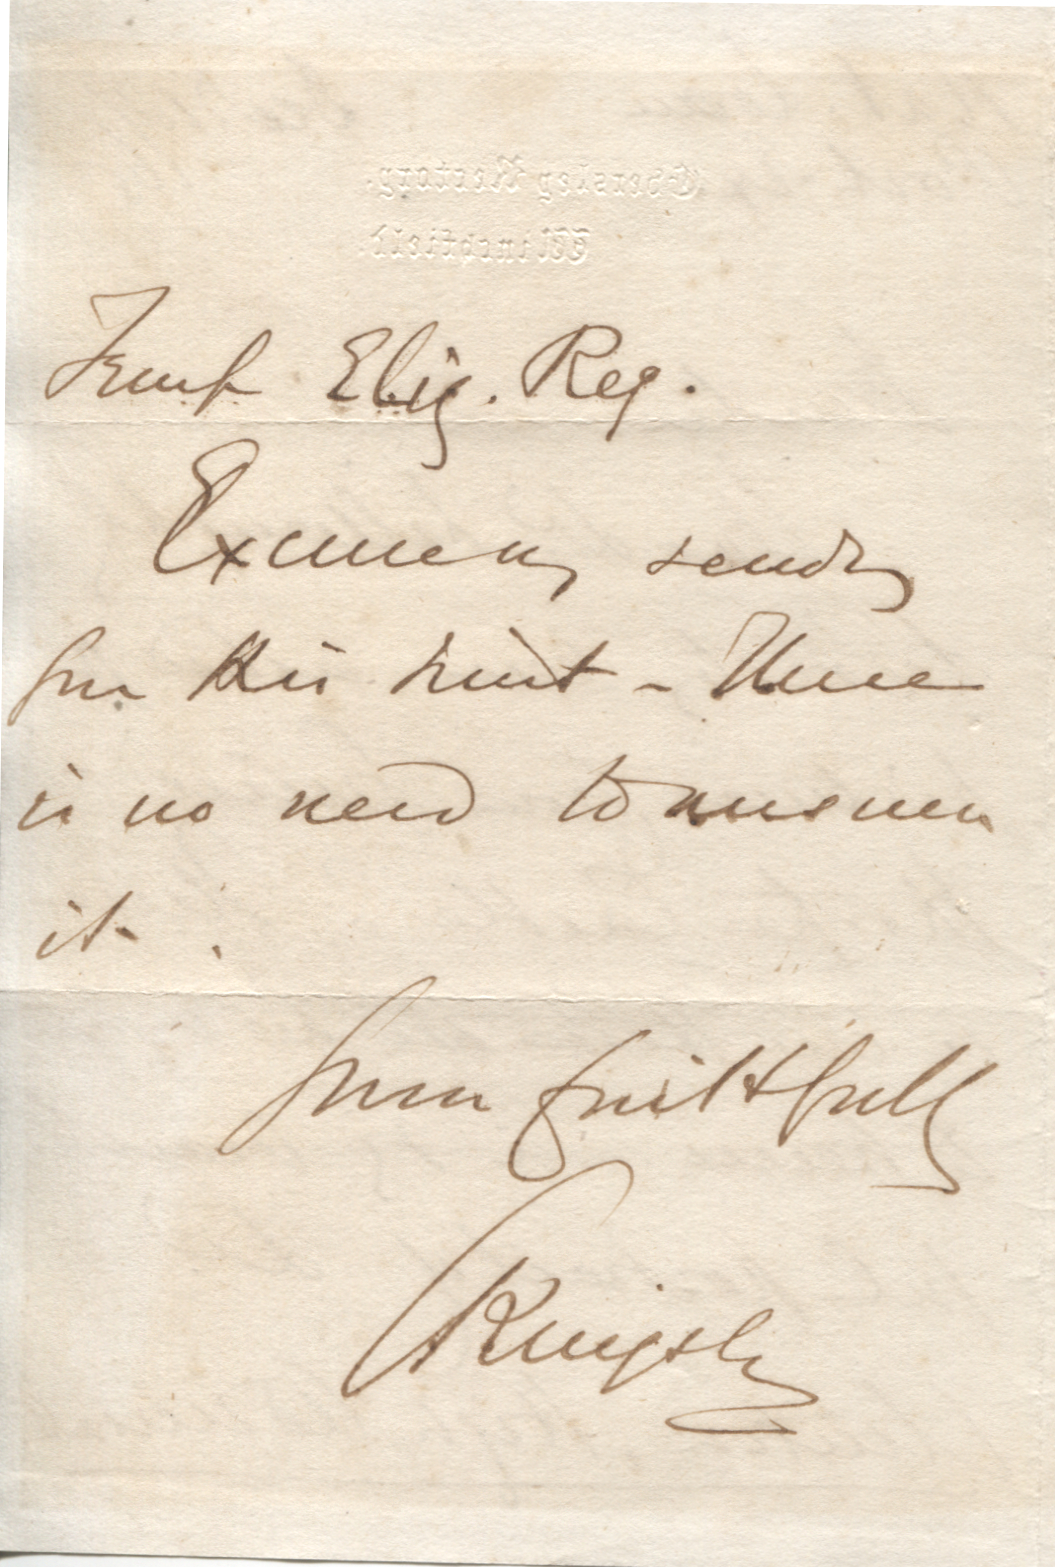 Eversley Rectory,
Winchfield.
Temp Eliz. Reg.
Excuse my sending
you this hint - There
is no need to answer
it.
Yours faithfully
CKingsley